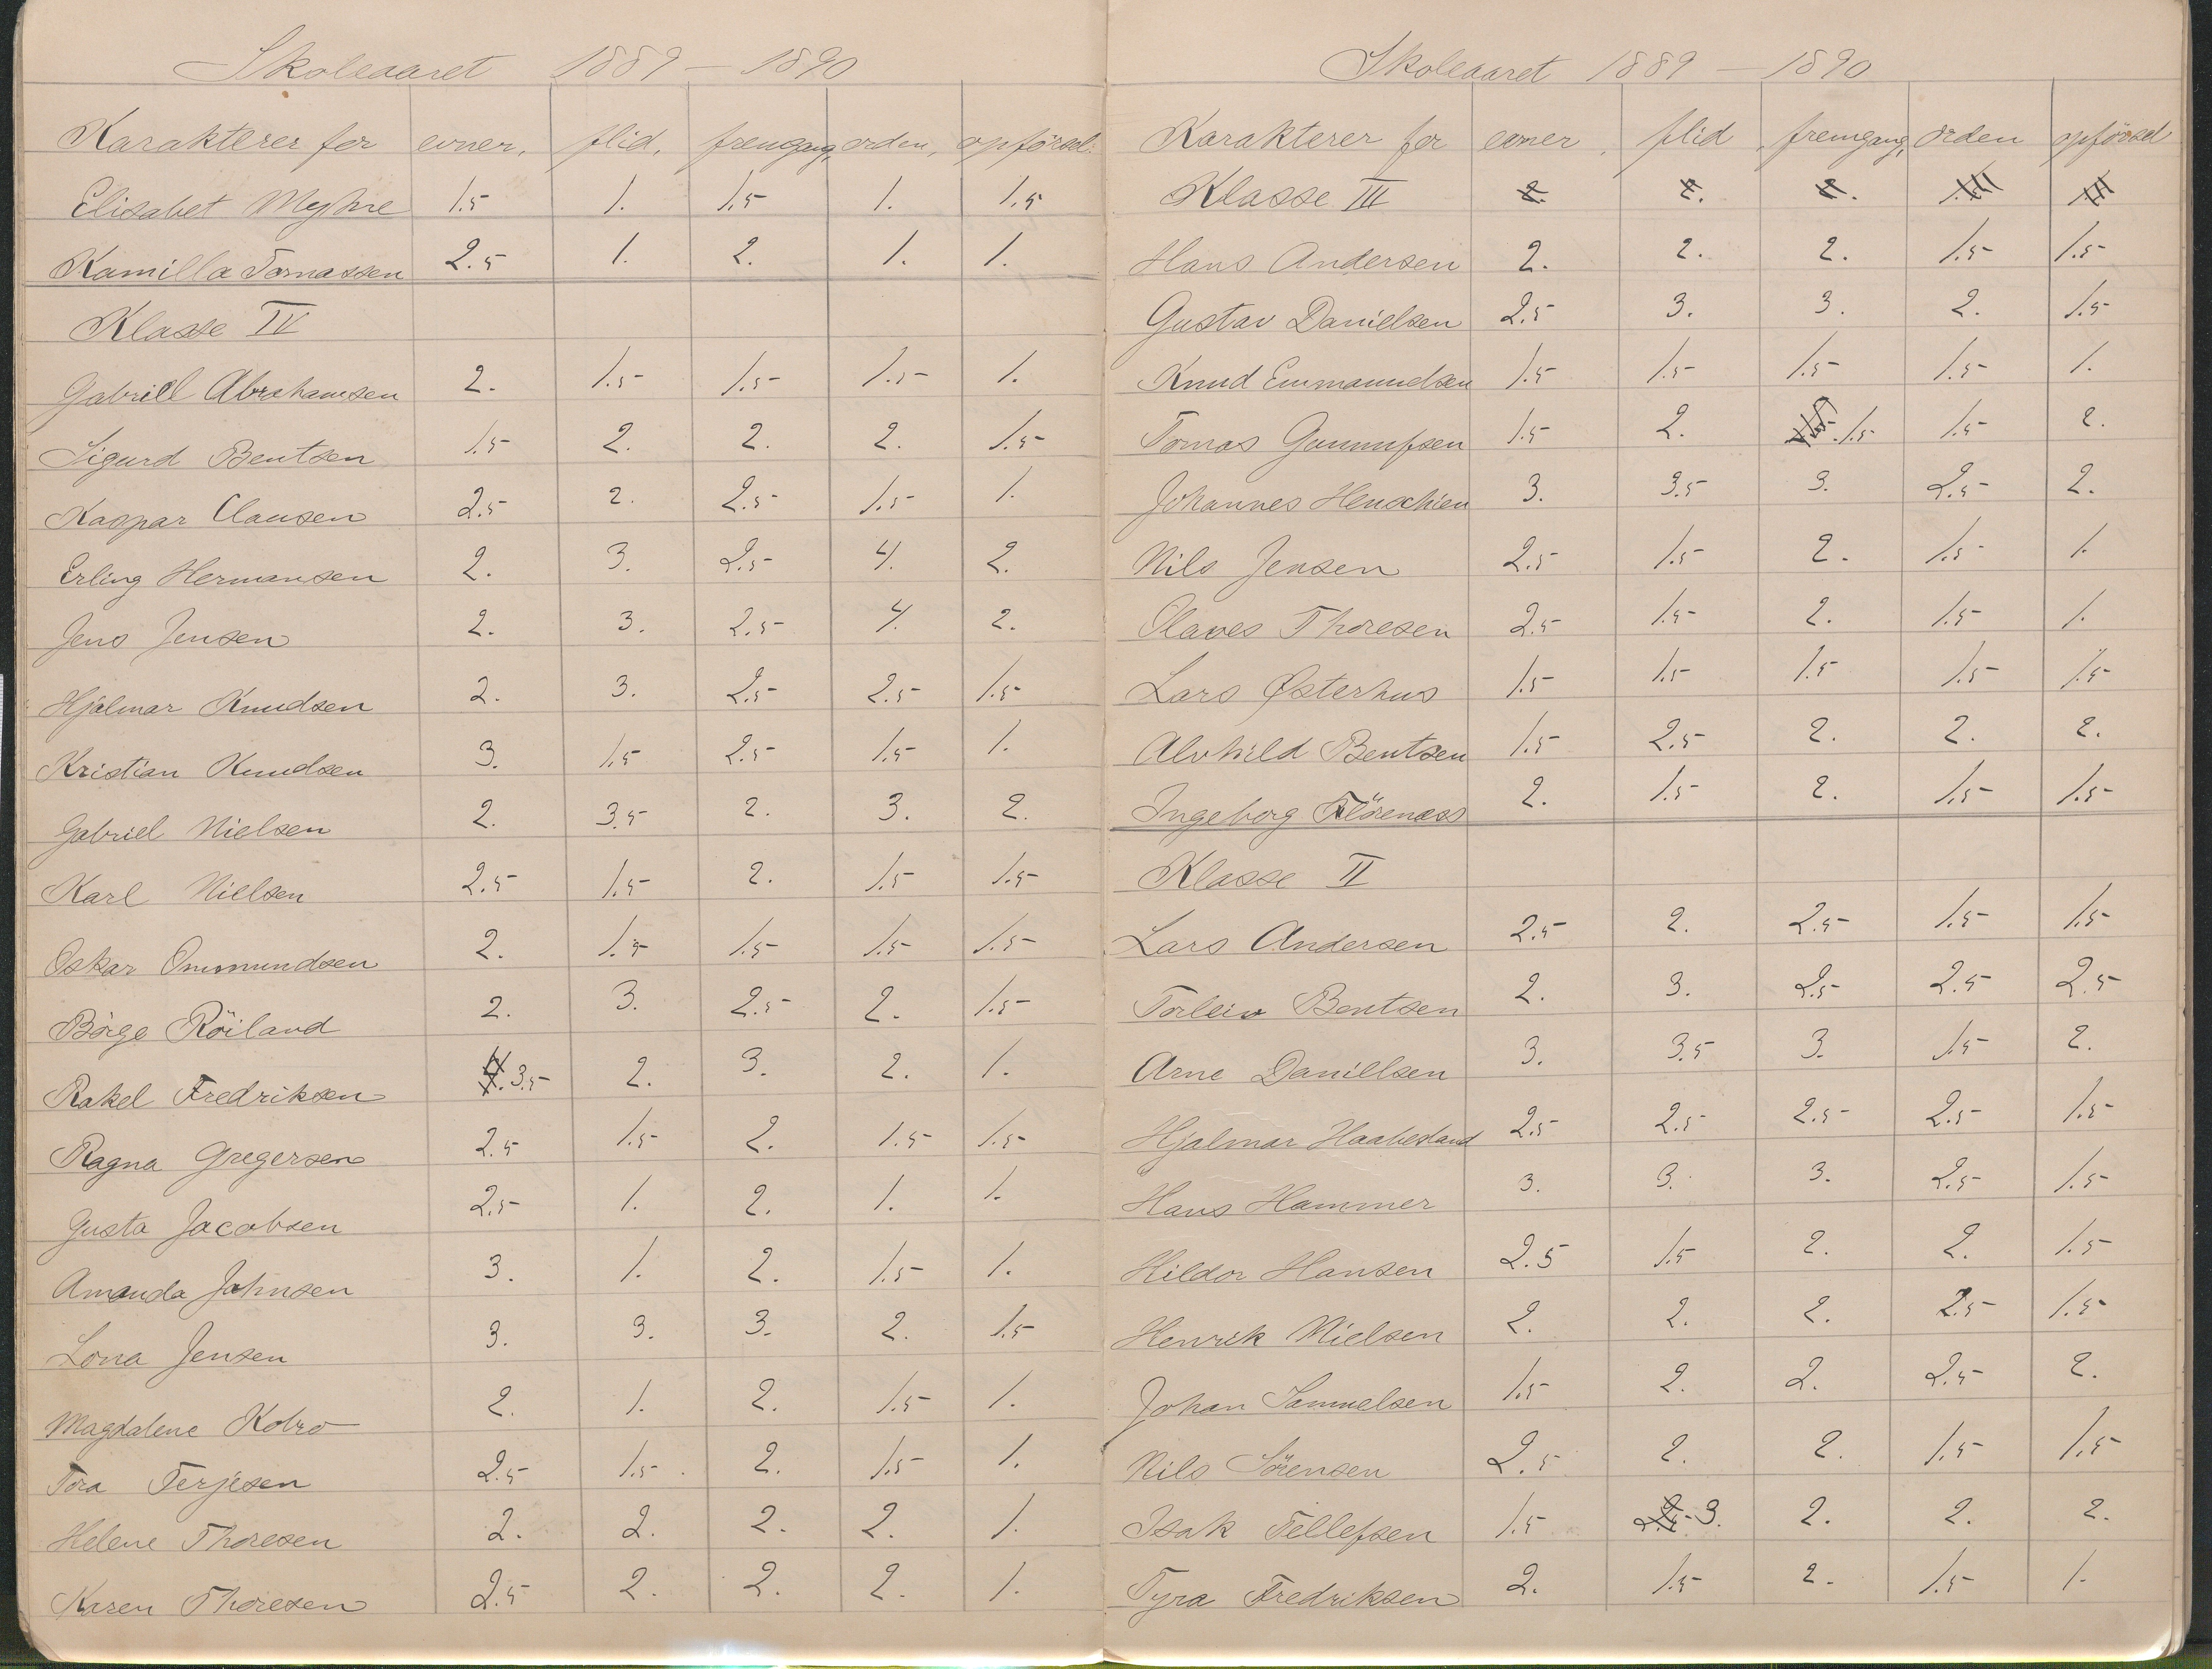 Skoleaaret 1889 – 1890
Karakterer for evner, flid, fremgang, orden, opförsel.
Elisabet Myhre 1.5 1. 1.5 1. 1.5
Kamilla Tomassen 2.5 1. 2. 1. 1.
Klasse IV
Gabriel Abrahamsen 2. 1.5 1.5 1.5 1.
Sigurd Bentsen 1.5 2. 2. 2. 1.5
Kaspar Clausen 2.5 2. 2.5 1.5 1.
Erling Hermansen 2. 3. 2.5 4. 2.
Jens Jensen 2. 3. 2.5 4. 2.
Hjalmar Knudsen 2. 3. 2.5 2.5 1.5
Kristian Knudsen 3. 1.5 2.5 1.5 1.
Gabriel Nielsen 2. 3.5 2. 3. 2.
Karl Nielsen 2.5 1.5 2. 1.5 1.5
Oskar Ommundsen 2. 1.5 1.5 1.5 1.5
Börge Röiland 2. 3. 2.5 2. 1.5
Rakel Fredriksen 3.5 2. 3. 2. 1.
Ragna Gregersen 2.5 1.5 2. 1.5 1.5
Gusta Jacobsen 2.5 1. 2. 1. 1.
Amanda Johnsen 3. 1. 2. 1.5 1.
Lona Jensen 3. 3. 3. 2. 1.5
Magdalene Kobro 2. 1. 2. 1.5 1.
Tora Terjesen 2.5 1.5 2. 1.5 1.
Helene Thoresen 2. 2. 2. 2. 1.
Karen Thoresen 2.5 2. 2. 2. 1.
Skoleaaret 1889 – 1890
Karakterer for evner, flid, fremgang, orden opförsel
Klasse III
Hans Andersen 2. 2. 2. 1.5 1.5
Gustav Danielsen 2.5 3. 3. 2. 1.5
Knud Emmanuelsen 1.5 1.5 1.5 1.5 1.
Tomas Gunnufsen 1.5 2. 1.5 1.5 2.
Johannes Henschien 3. 3.5 3. 2.5 2.
Nils Jensen 2.5 1.5 2. 1.5 1.
Olaves Thoresen 2.5 1.5 2. 1.5 1.
Lars Østerhus 1.5 1.5 1.5 1.5 1.5
Alvhild Bentsen 1.5 2.5 2. 2. 2.
Ingeborg Flörenæss 2. 1.5 2. 1.5 1.5
Klasse II
Lars Andersen 2.5 2. 2.5 1.5 1.5
Torleiv Bentsen 2. 3. 2.5 2.5 2.5
Arne Danielsen 3. 3.5 3. 1.5 2.
Hjalmar Haabesland 2.5 2.5 2.5 2.5 1.5
Hans Hammer 3. 3. 3. 2.5 1.5
Hildor Hansen 2.5 1.5 2. 2. 1.5
Henrik Nielsen 2. 2. 2. 2.5 1.5
Johan Samuelsen 1.5 2. 2. 2.5 2.
Nils Sörensen 2.5 2. 2. 1.5 1.5
Isak Tellefsen 1.5 3. 2. 2. 2.
Tyra Fredriksen 2. 1.5 2. 1.5 1.